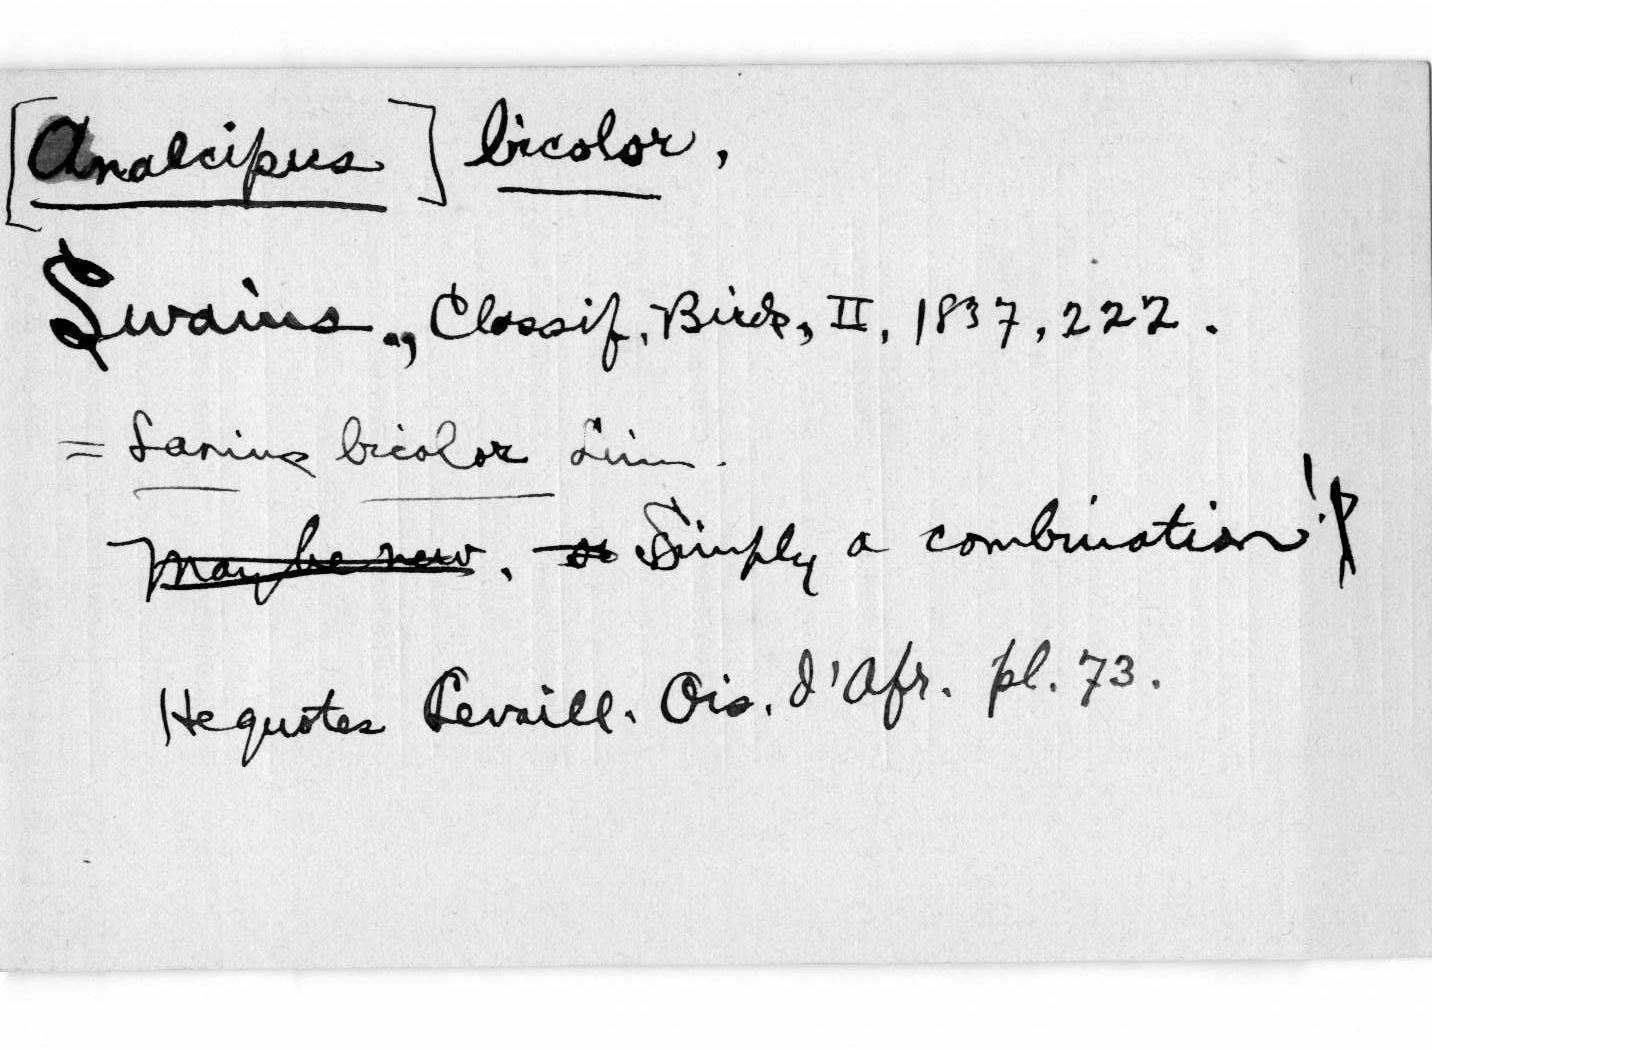 [Analcipus] bicolor,
Swains., Classif. Birds, II, 1837, 222.
= Lanius bicolor Linn.
May be new. Simply a combination!
He quotes Levaill. Ois. d'Afr. pl. 73.